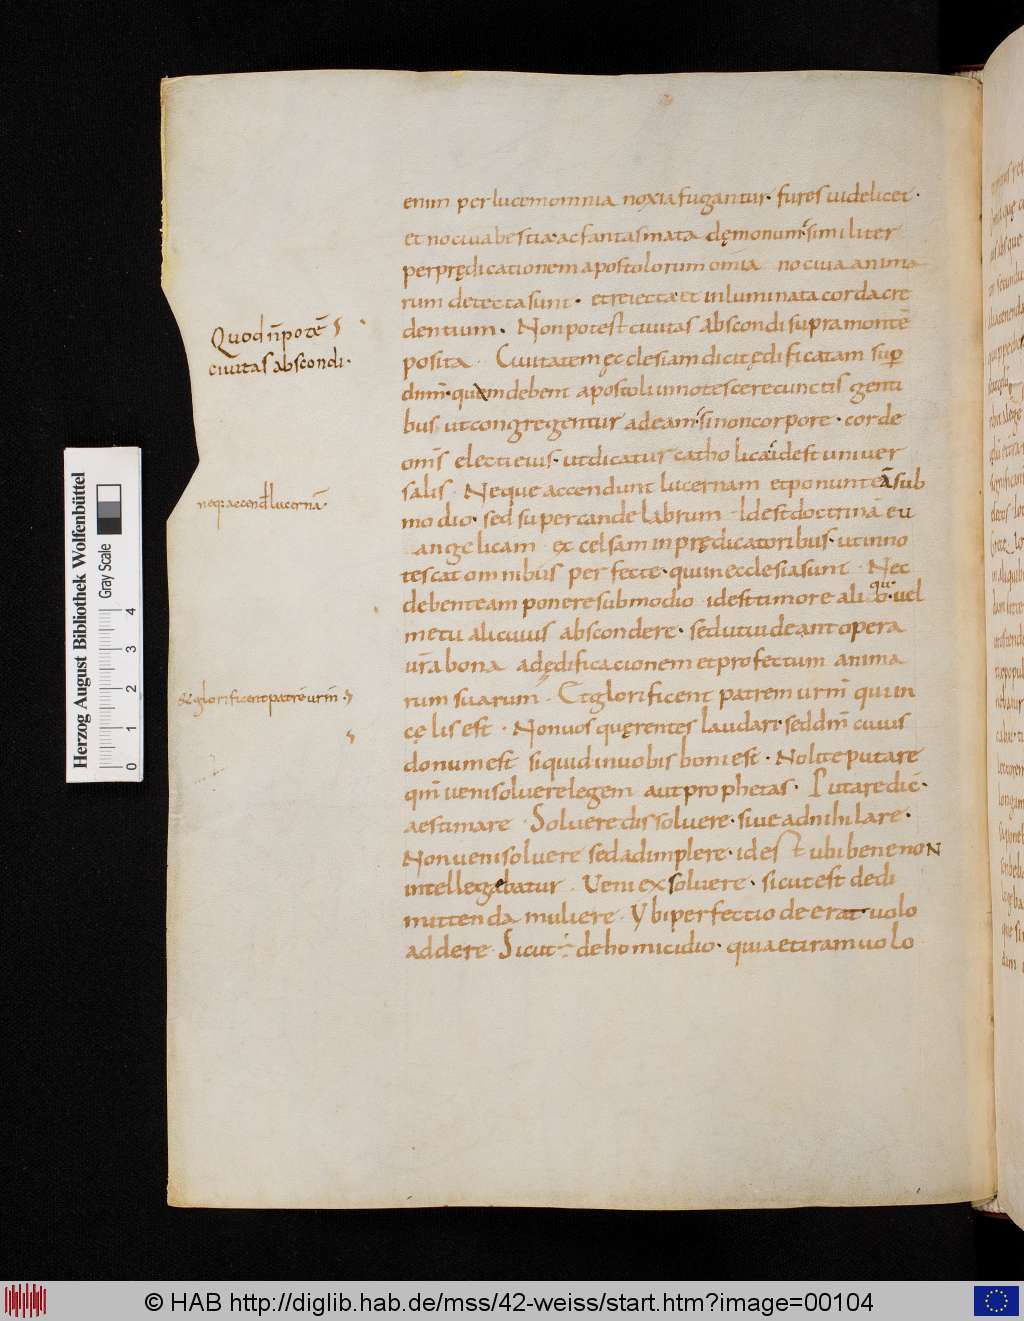 enim per lucem omnia noxia fugantur · fures uidelicet ·
et nociua bestia · ac fantasmata dęmonum · similiter
per prędicationem apostolorum om̄ia nociua anima
rum detecta sunt · et reiecta et inluminata corda cre
dentium · Non potest ciuitas abscondi supra montē
Quod n̄ potē
ciuitas abscondi ·
posita · Ciuitatem ęcclesiam dicit ędificatam sup̄
dnm̄ · quem debent apostoli innotescere cunctis genti
bus ut congregentur ad eam · si non corpore · corde
om̄s electi eius · ut dicatur catholica · id est uniuer
salis · Neque accendunt lucernam et ponunt eā sub
neq; accend̄ lucernā ·
modio · sed super candelabrum · Id est doctrinā eu
angelicam ęcelsam in prędicatoribus · ut inno
tescat omnibus perfecte · qui in ecclesia sunt · Nec
debent eam ponere sub modio id est timore ali quo · uel
metu alicuius abscondere · sed ut uideant opera
ur̄a bona ad ędificacionem et profectum anima
rum suarum · Et glorificent patrem urm̄ qui in
& glorificent patrē urm̄ ·
cęlis est · Non uos quęrentes laudari · sed dnm̄ cuius
donum est siquid in uobis boni est · Nolite putare
qm̄ ueni soluere legem aut prophetas · Putare dic̄ ·
aestimare · Soluere dissoluere · siue adnihilare ·
Non ueni soluere sed adimplere · id est ubi bene non
intellegebatur · Ueni exsoluere · sicut est de di
mittenda muliere · Ybi perfectio deerat · uolo
addere · Sicut ÷ de homicidio · quia et iram uolo
Herzog August Bibliothek Wolfenbüttel
Gray Scale
0 1 2 3 4
© HAB http://diglib.hab.de/mss/42-weiss/start.htm?image=00104